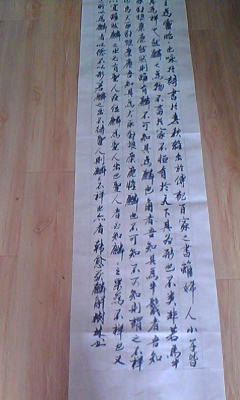 為靈昭昭也咏於詩書於春秋雜出於傳記百家之書雖婦人小子皆
為祥也然麟之為物不畜於家不恒有於天下其為形也不類非若馬牛
豺狼麋鹿然然則雖有麟不可知其為麟也角者吾知其為牛鬣者吾知
為馬犬豕豺狼麋鹿吾知其為犬豕豺狼麋鹿惟麟也不可知不可知則謂之不祥
宜雖然麟之出必有聖人在乎位麟為聖人出也聖人者必知麟之果為不祥也又
為麟者以德不以形若麟之出不待聖人則麟不祥也亦宜韓愈獲麟解